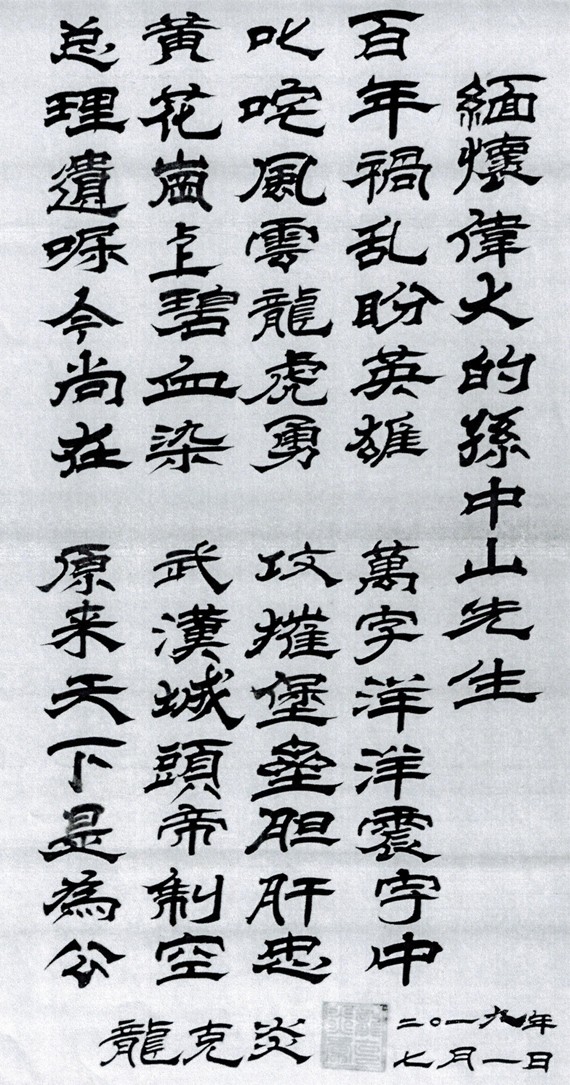 緬懷偉大的孫中山先生
百年禍乱盼英雄 萬字洋洋震宇中
叱咤風雲龍虎勇 攻摧堡壘胆肝忠
黄花崗上碧血染 武漢城頭帝制空
总理遺嘱今尚在 原来天下是為公
龍克炎
二〇一九年
七月一日